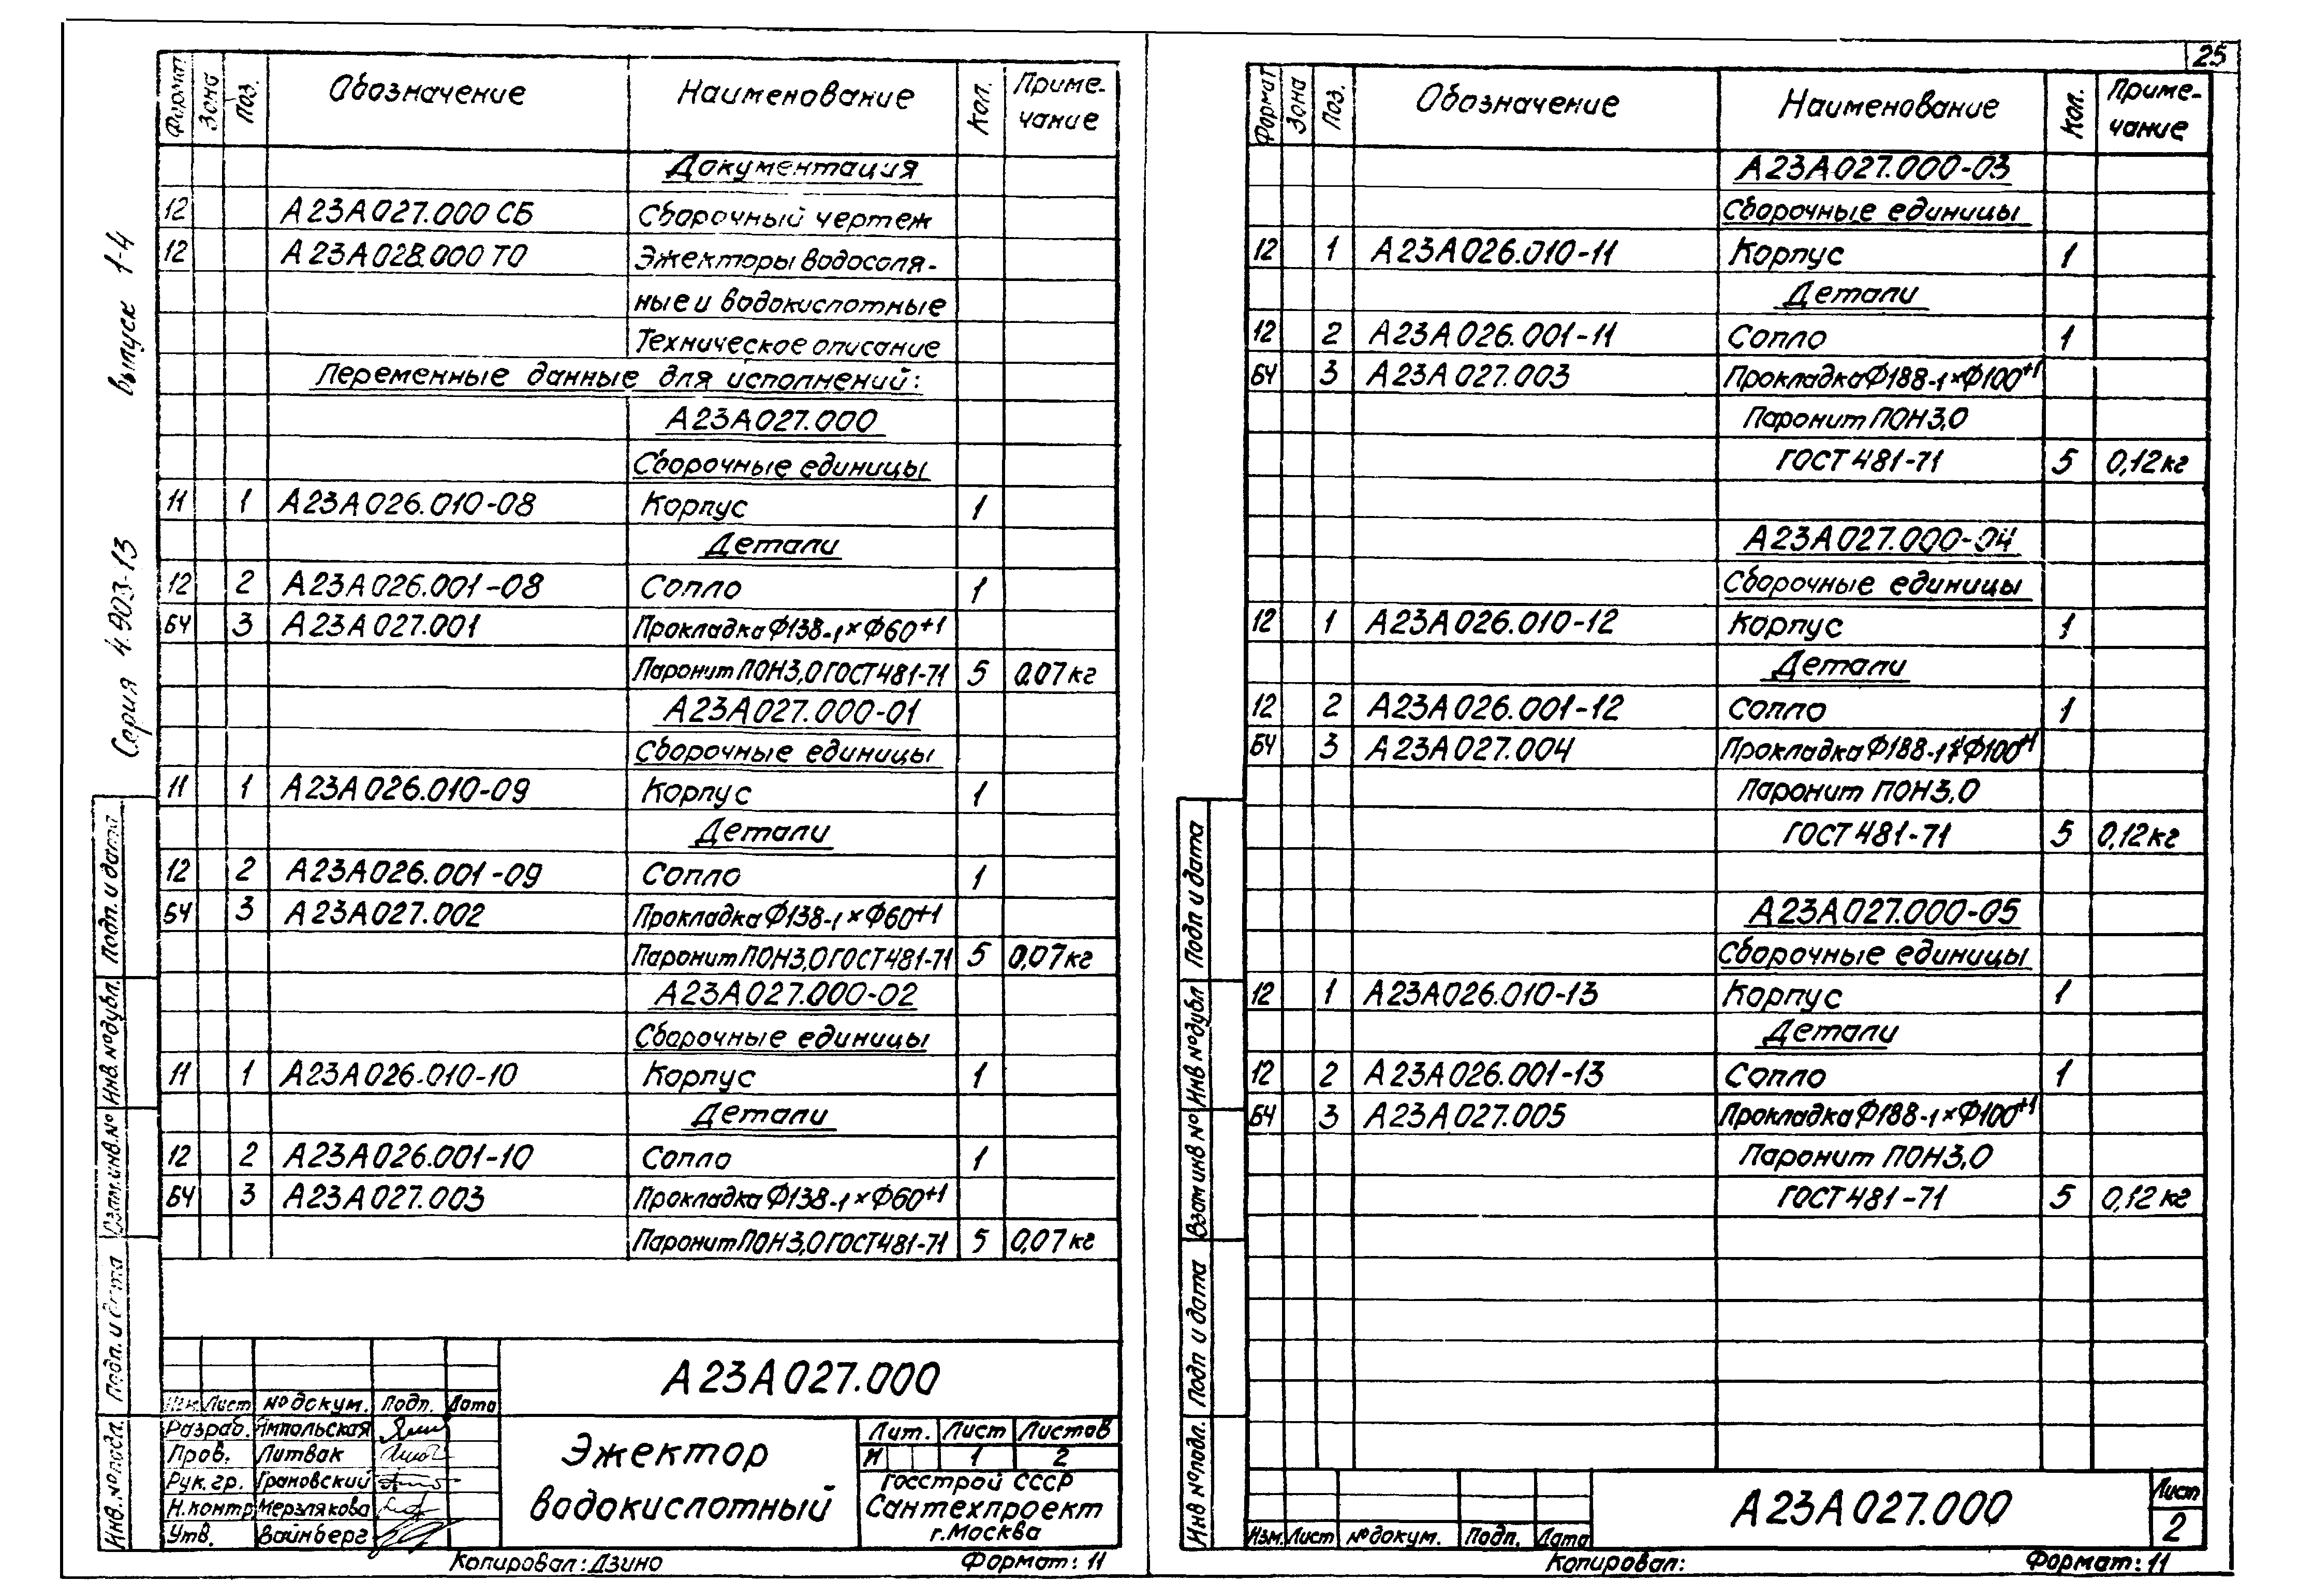 25
Серия 4.903-13 выпуск 1-4
Формат Зона Поз. Обозначение Наименование Кол. Приме-
чание
Документация
12 А23А027.000 СБ Сборочный чертеж
12 А23А028.000 ТО Эжекторы водосоля-
ные и водокислотные
Техническое описание
Переменные данные для исполнений:
А23А027.000
Сборочные единицы
11 1 А23А026.010-08 Корпус 1
Детали
12 2 А23А026.001-08 Сопло 1
БЧ 3 А23А027.001 Прокладка Ф138-1×Ф60+1
Паронит ПОН3,0 ГОСТ 481-71 5 0,07 кг
А23А027.000-01
Сборочные единицы
11 1 А23А026.010-09 Корпус 1
Детали
12 2 А23А026.001-09 Сопло 1
БЧ 3 А23А027.002 Прокладка Ф138-1×Ф60+1
Паронит ПОН3,0 ГОСТ 481-71 5 0,07 кг
А23А027.000-02
Сборочные единицы
11 1 А23А026.010-10 Корпус 1
Детали
12 2 А23А026.001-10 Сопло 1
БЧ 3 А23А027.003 Прокладка Ф138-1×Ф60+1
Паронит ПОН3,0 ГОСТ 481-71 5 0,07 кг
Подп. и дата
Инв. № дубл.
Взам. инв. №
Подп. и дата
Инв. № подл.
А23А027.000
Изм. Лист № докум. Подп. Дата
Разраб. Ямпольская
Пров. Литвак
Рук. гр. Грановский
Н.контр Мерзлякова
Утв. Вайнберг
Эжектор
водокислотный
Лит. Лист Листов
И 1 2
Госстрой СССР
Сантехпроект
г. Москва
Копировал: Дзино Формат: 11
Формат Зона Поз. Обозначение Наименование Кол. Приме-
чание
А23А027.000-03
Сборочные единицы
12 1 А23А026.010-11 Корпус 1
Детали
12 2 А23А026.001-11 Сопло 1
БЧ 3 А23А027.003 Прокладка Ф188-1×Ф100+1
Паронит ПОН3,0
ГОСТ 481-71 5 0,12 кг
А23А027.000-04
Сборочные единицы
12 1 А23А026.010-12 Корпус 1
Детали
12 2 А23А026.001-12 Сопло 1
БЧ 3 А23А027.004 Прокладка Ф188-1×Ф100+1
Паронит ПОН3,0
ГОСТ 481-71 5 0,12 кг
А23А027.000-05
Сборочные единицы
12 1 А23А026.010-13 Корпус 1
Детали
12 2 А23А026.001-13 Сопло 1
БЧ 3 А23А027.005 Прокладка Ф188-1×Ф100+1
Паронит ПОН3,0
ГОСТ 481-71 5 0,12 кг
Подп и дата
Инв № дубл
Взам инв №
Подп и дата
Инв № подл.
Изм. Лист № докум. Подп. Дата
А23А027.000
Лист
2
Копировал: Формат: 11